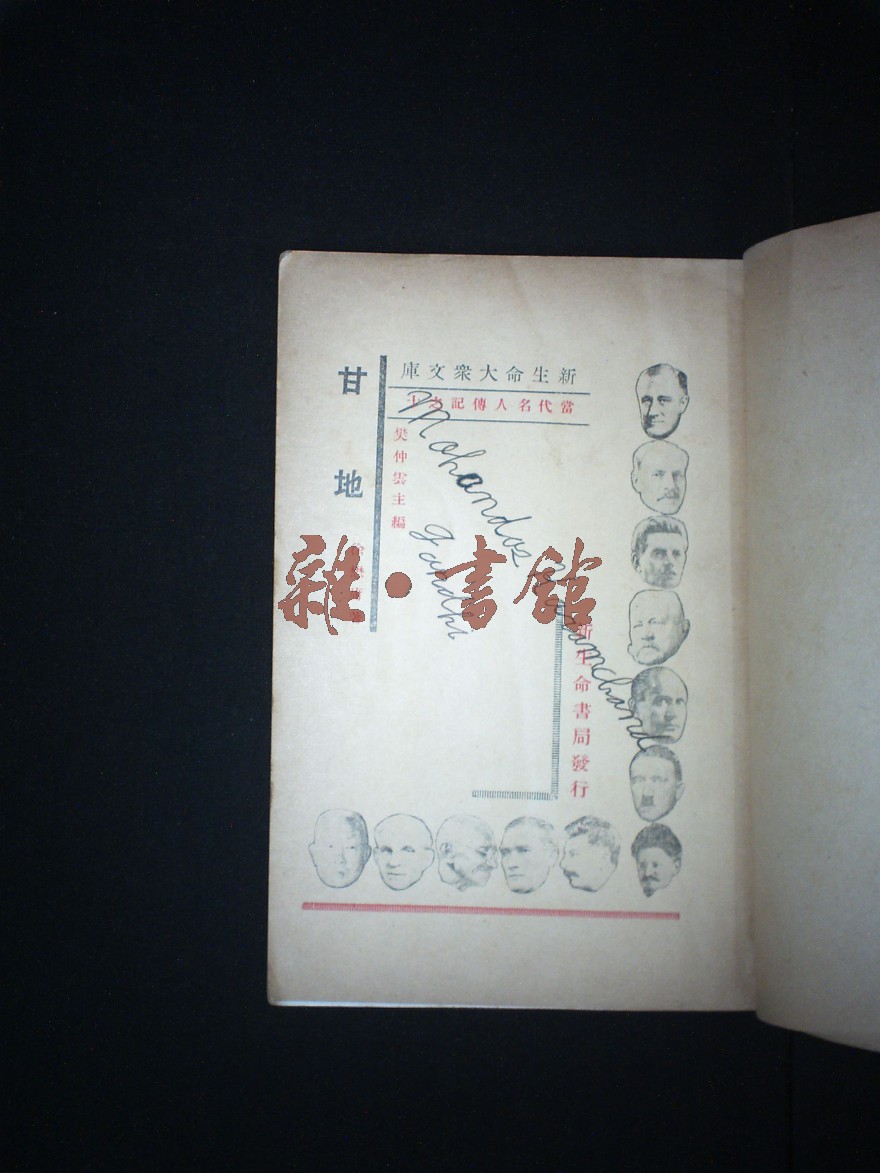 新生命大衆文庫
當代名人傳記之十
甘地
樊仲雲主編
新生命書局發行
Mohandas Karamchand
Gandhi
雜·書館